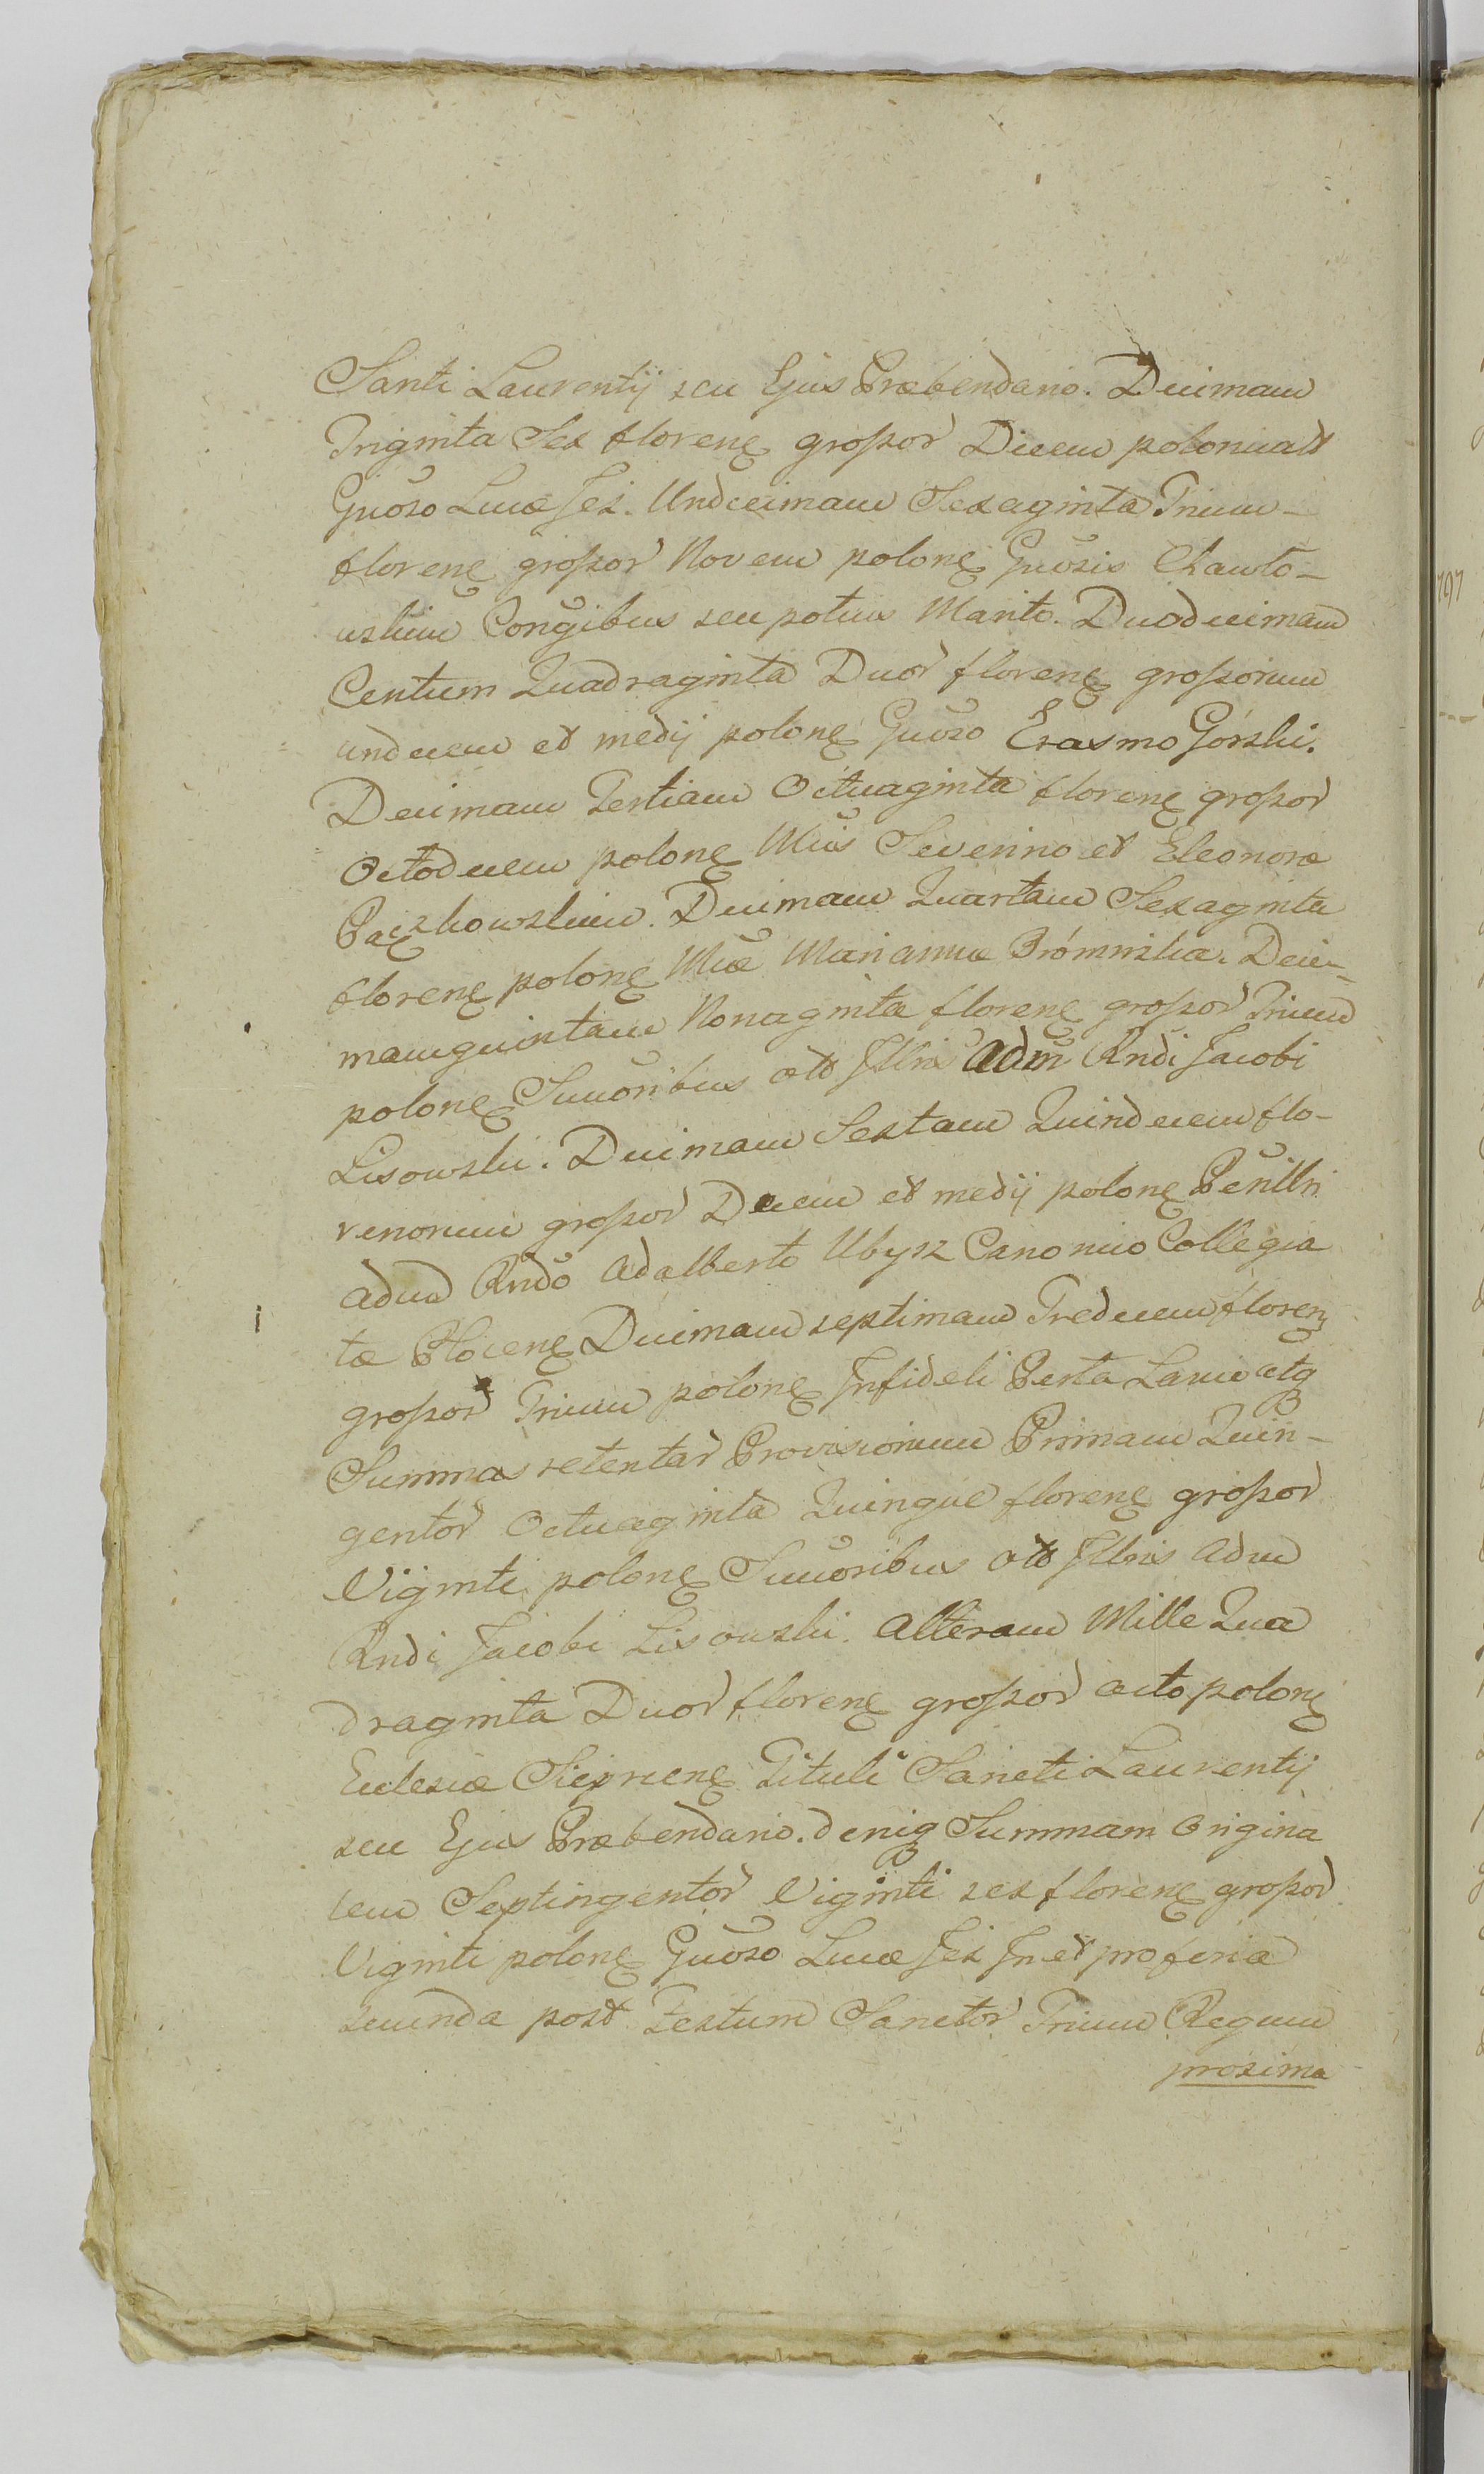 Santi Laurentij seu Ejus Præbendario. Decimam
Triginta Sex florenę großor Decem polonicalt
Gnõso Lucæ Jeż. Undecimam Sexaginta Trium-
florenę großor Novem polonę Gnõsis Chawło-
wskim Conŭgibus seu potius Marito. Duodecimam
Centum Quadraginta Duor florenę großorum
undecem et medij polonę Gnõso Erasmo Górski.
Decimam Tertiam Octuaginta florenę großor
Octodecem polonę Mcis Severino et Eleonoræ
Pączkowskim. Decimam Quartam Sexaginta
florenę polonę Mcæ Mariannæ Brómirska. Deci-
mamquintam Nonaginta florenę großor Trium
polonę Succõribus olt Jllris Adm Rndi Jacobi
Lisowski. Decimam Sextam Quindecem flo-
renorum großor Decem et medij polonę Perillri
adm Rndo Adalberto Ubysz Canonico Collegia
tæ Płocenę Decimam septimam Tredecem florenę
großor Trium polonę Jnfideli Berka Lawie atq
Summas retentar Provisionum Primam Quin-
gentor Octuaginta Quinque florenę großor
Viginti polonę Succõribus olt Jllris adm
Rndi Jacobi Lisowski. Alteram Mille Qua
draginta Duor florenę großor octo polonę
Ecclesiæ Sieprcenę Tituli Sancti Laurentij
seu Ejus Præbendario. deniq Summam Origina
lem Septingentor Viginti sex florenę großor
Viginti polonę Gnõso Lucæ Jeż Jn et pro feria
secunda post Festum Sanctor Trium Regum
proxima